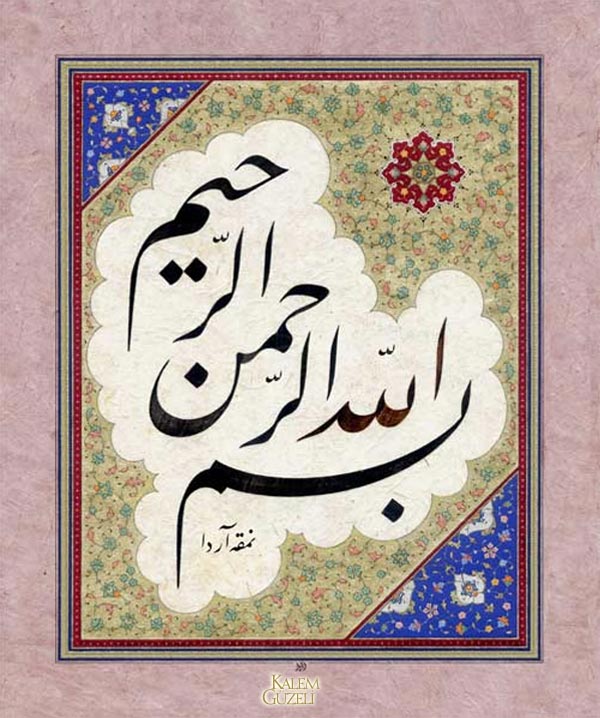 بسم الله الرّحمن الرّحيم
نمقه آردا
KALEM
GUZELİ